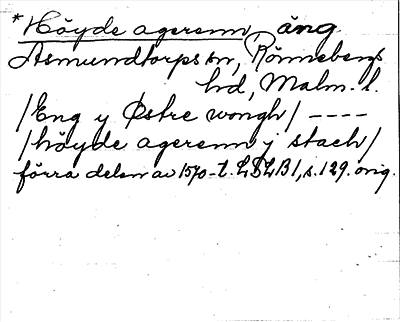 *Höyde agerenn, äng
Asmundtorps sn, Rönnebergs
hd, Malm. l.
/Eng y Østre wongh/ ----
/höyde agerenn j stach/
förra delen av 1570-t. LDLB1, s. 129. orig.